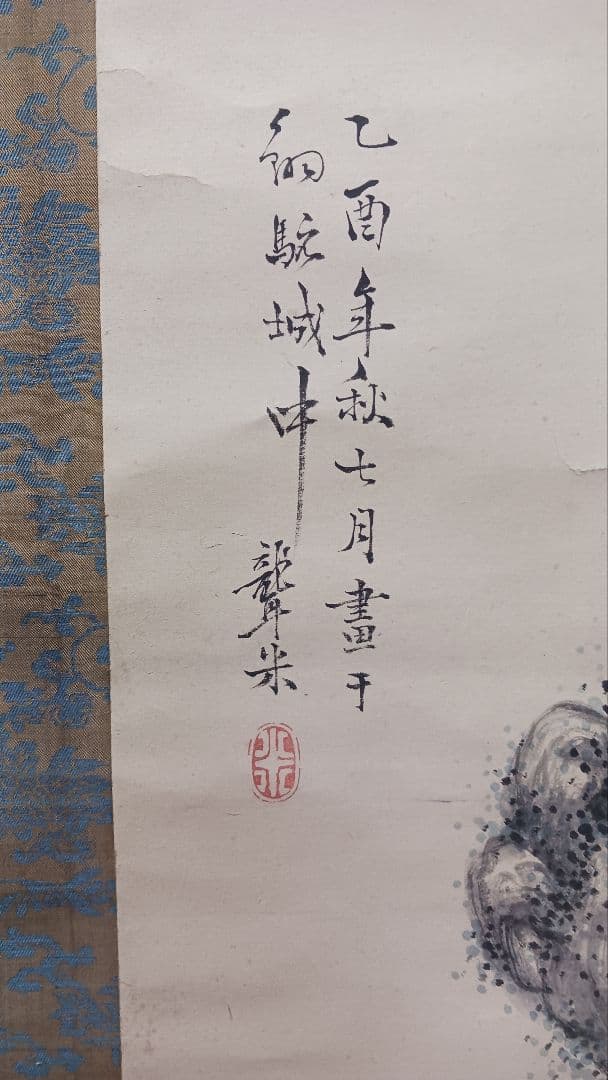 乙酉年秋七月畫于
銅駝城中
聾米
米